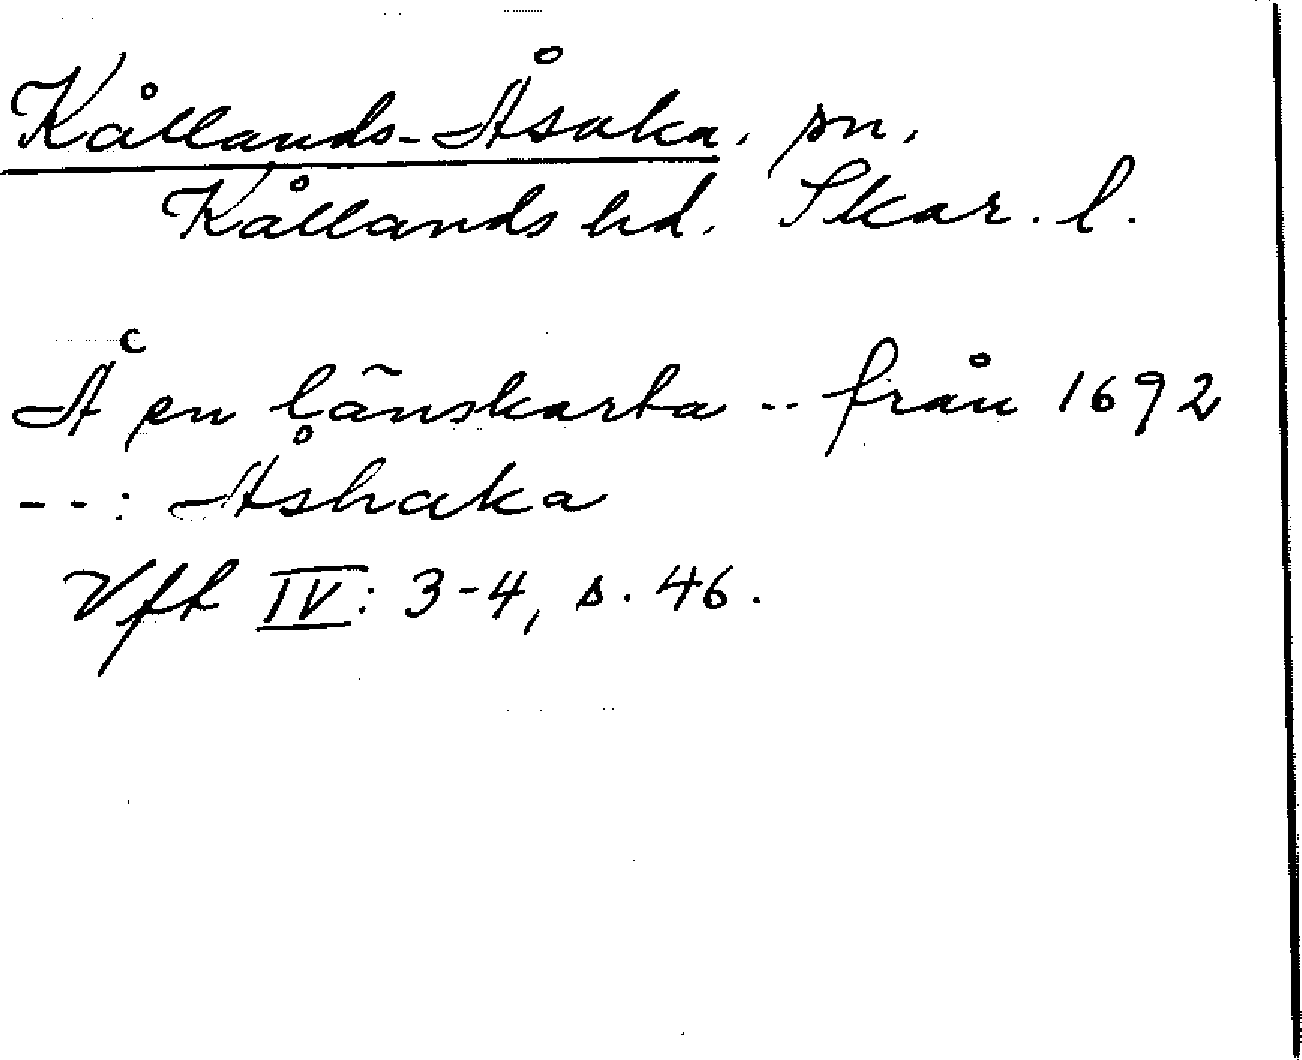 Kållands-Åsaka, sn.
Kållands hd. Skar. l.
Å en länskarta -- från 1692
--: Åshaka
Vft IV: 3-4, s. 46.